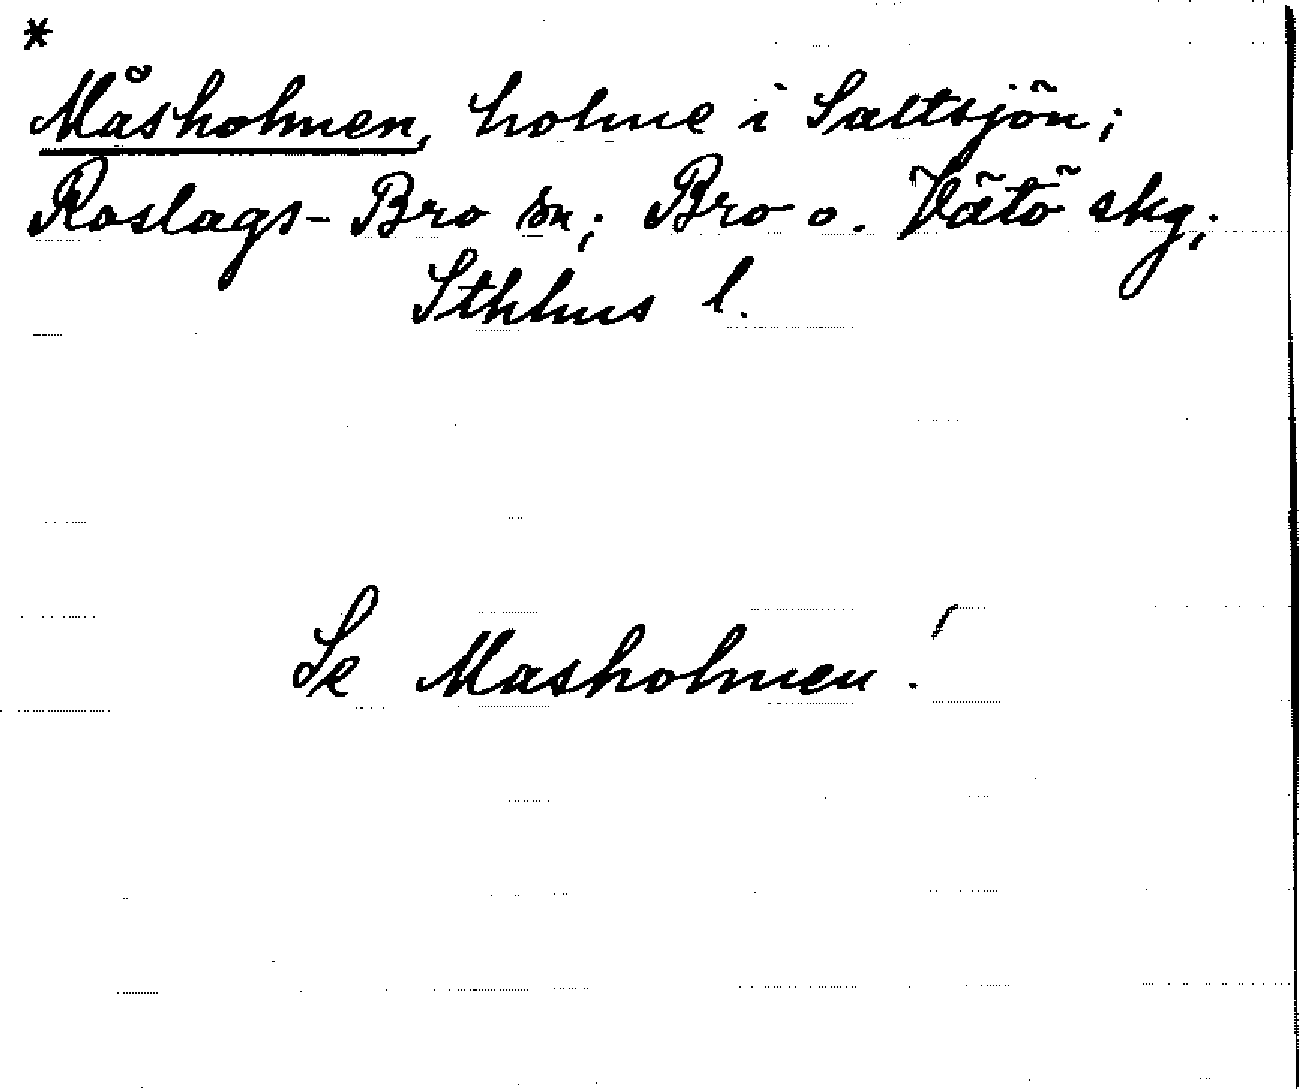 *
Måsholmen, holme i Saltsjön;
Roslags-Bro sn; Bro o. Vätö skg;
Sthlms l.
Se Masholmen!